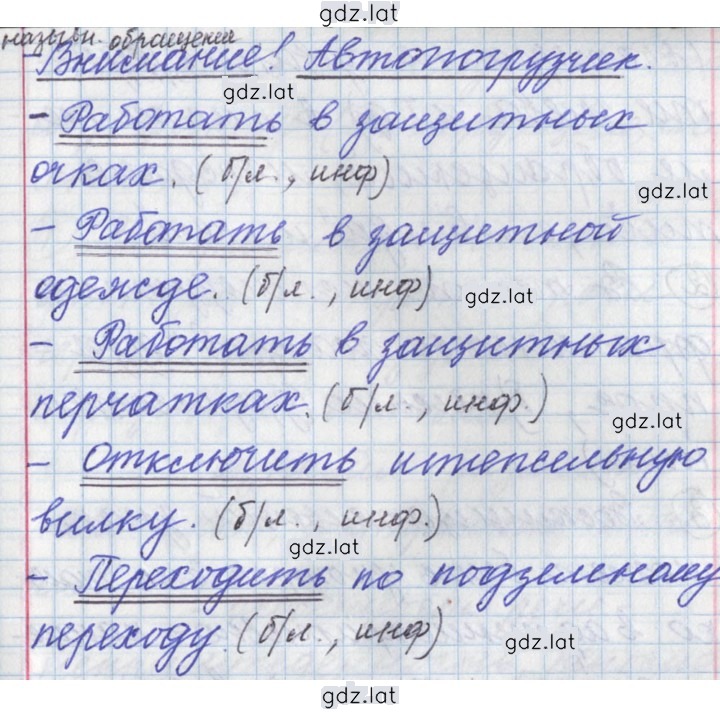 gdz.lat
назывн. обращения
- Внимание! Автопогрузчик.
gdz.lat
- Работать в защитных
очках. (б/л., инф)
gdz.lat
- Работать в защитной
одежде. (б/л., инф)
gdz.lat
- Работать в защитных
перчатках. (б/л., инф.)
gdz.lat
- Отключить штепсельную
вилку. (б/л., инф.)
gdz.lat
- Переходить по подземному
переходу. (б/л., инф)
gdz.lat
gdz.lat